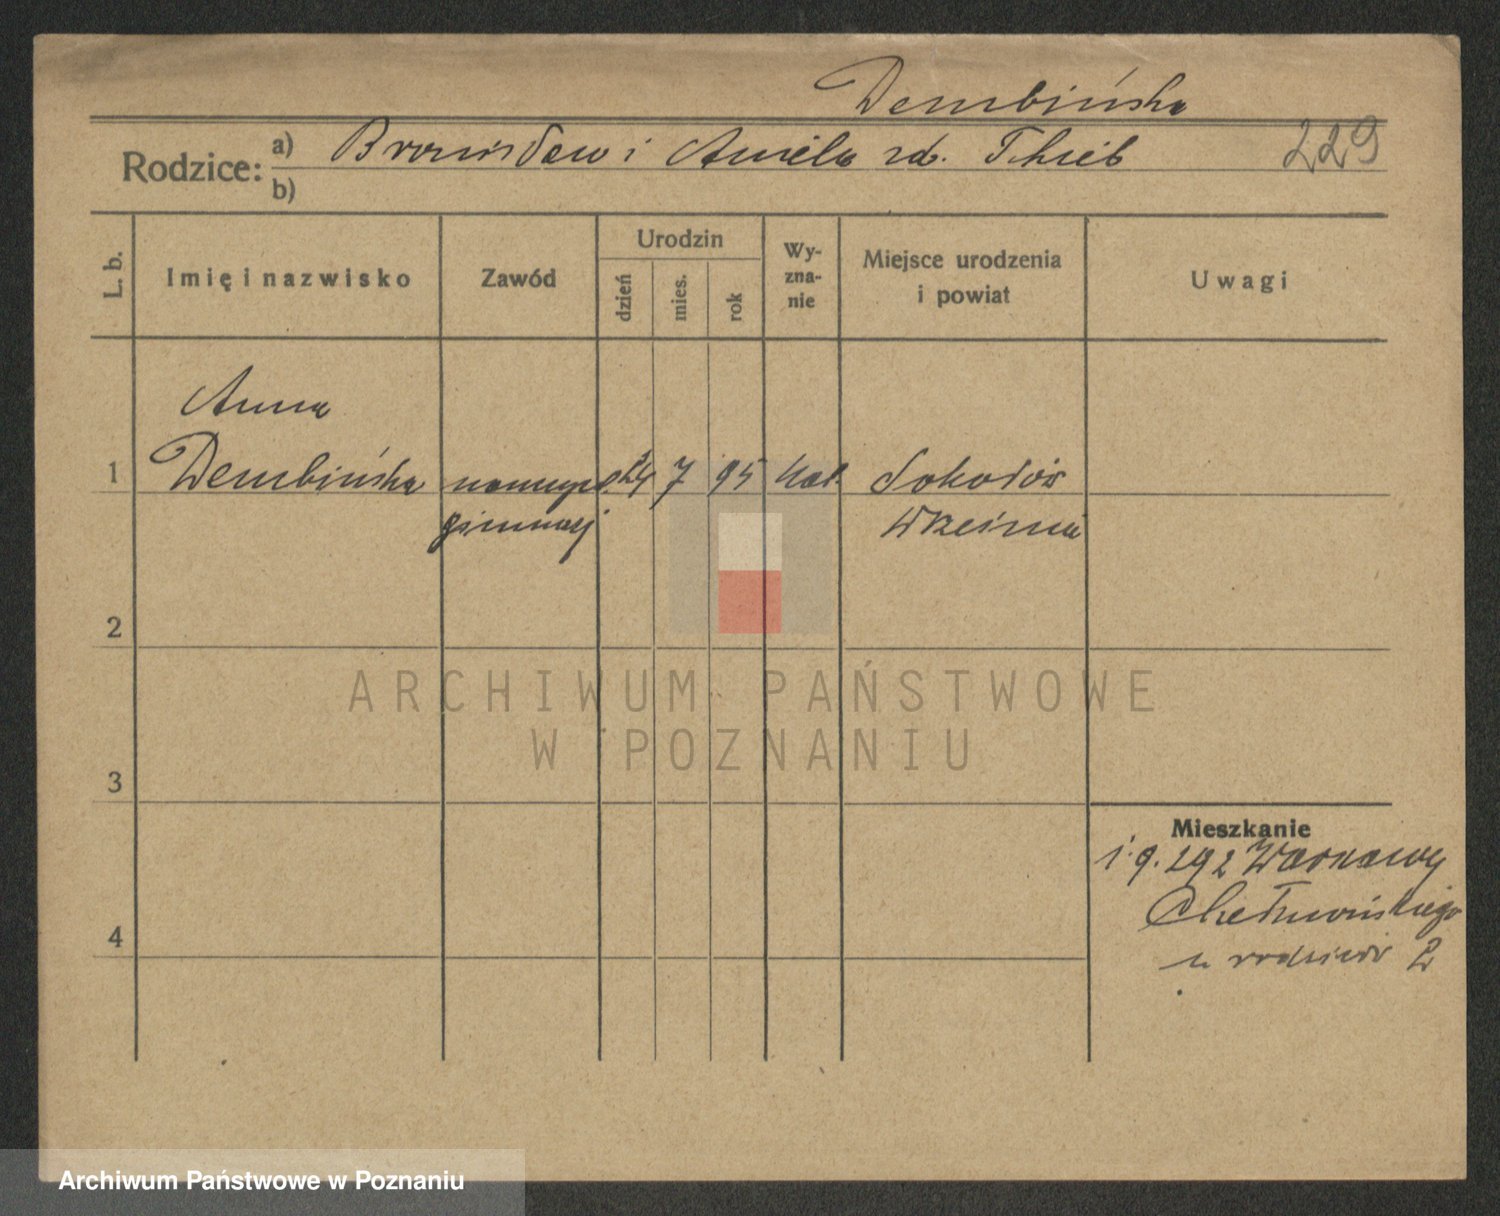 Dembińska
Rodzice: a) Bronisław i Aniela zd. Thieb
229
b)
L. b.
Imię i nazwisko
Zawód
Urodzin
dzień
mies.
rok
Wy-
zna-
nie
Miejsce urodzenia
i powiat
Uwagi
Anna
1 Dembińska nauczyc. 24 7 95 kat. Sokołów
gimnazj Września
2
3
4
ARCHIWUM PAŃSTWOWE
W POZNANIU
Mieszkanie
1.9.292 Warszawy
Chełmońskiego
u rodziców 2
Archiwum Państwowe w Poznaniu